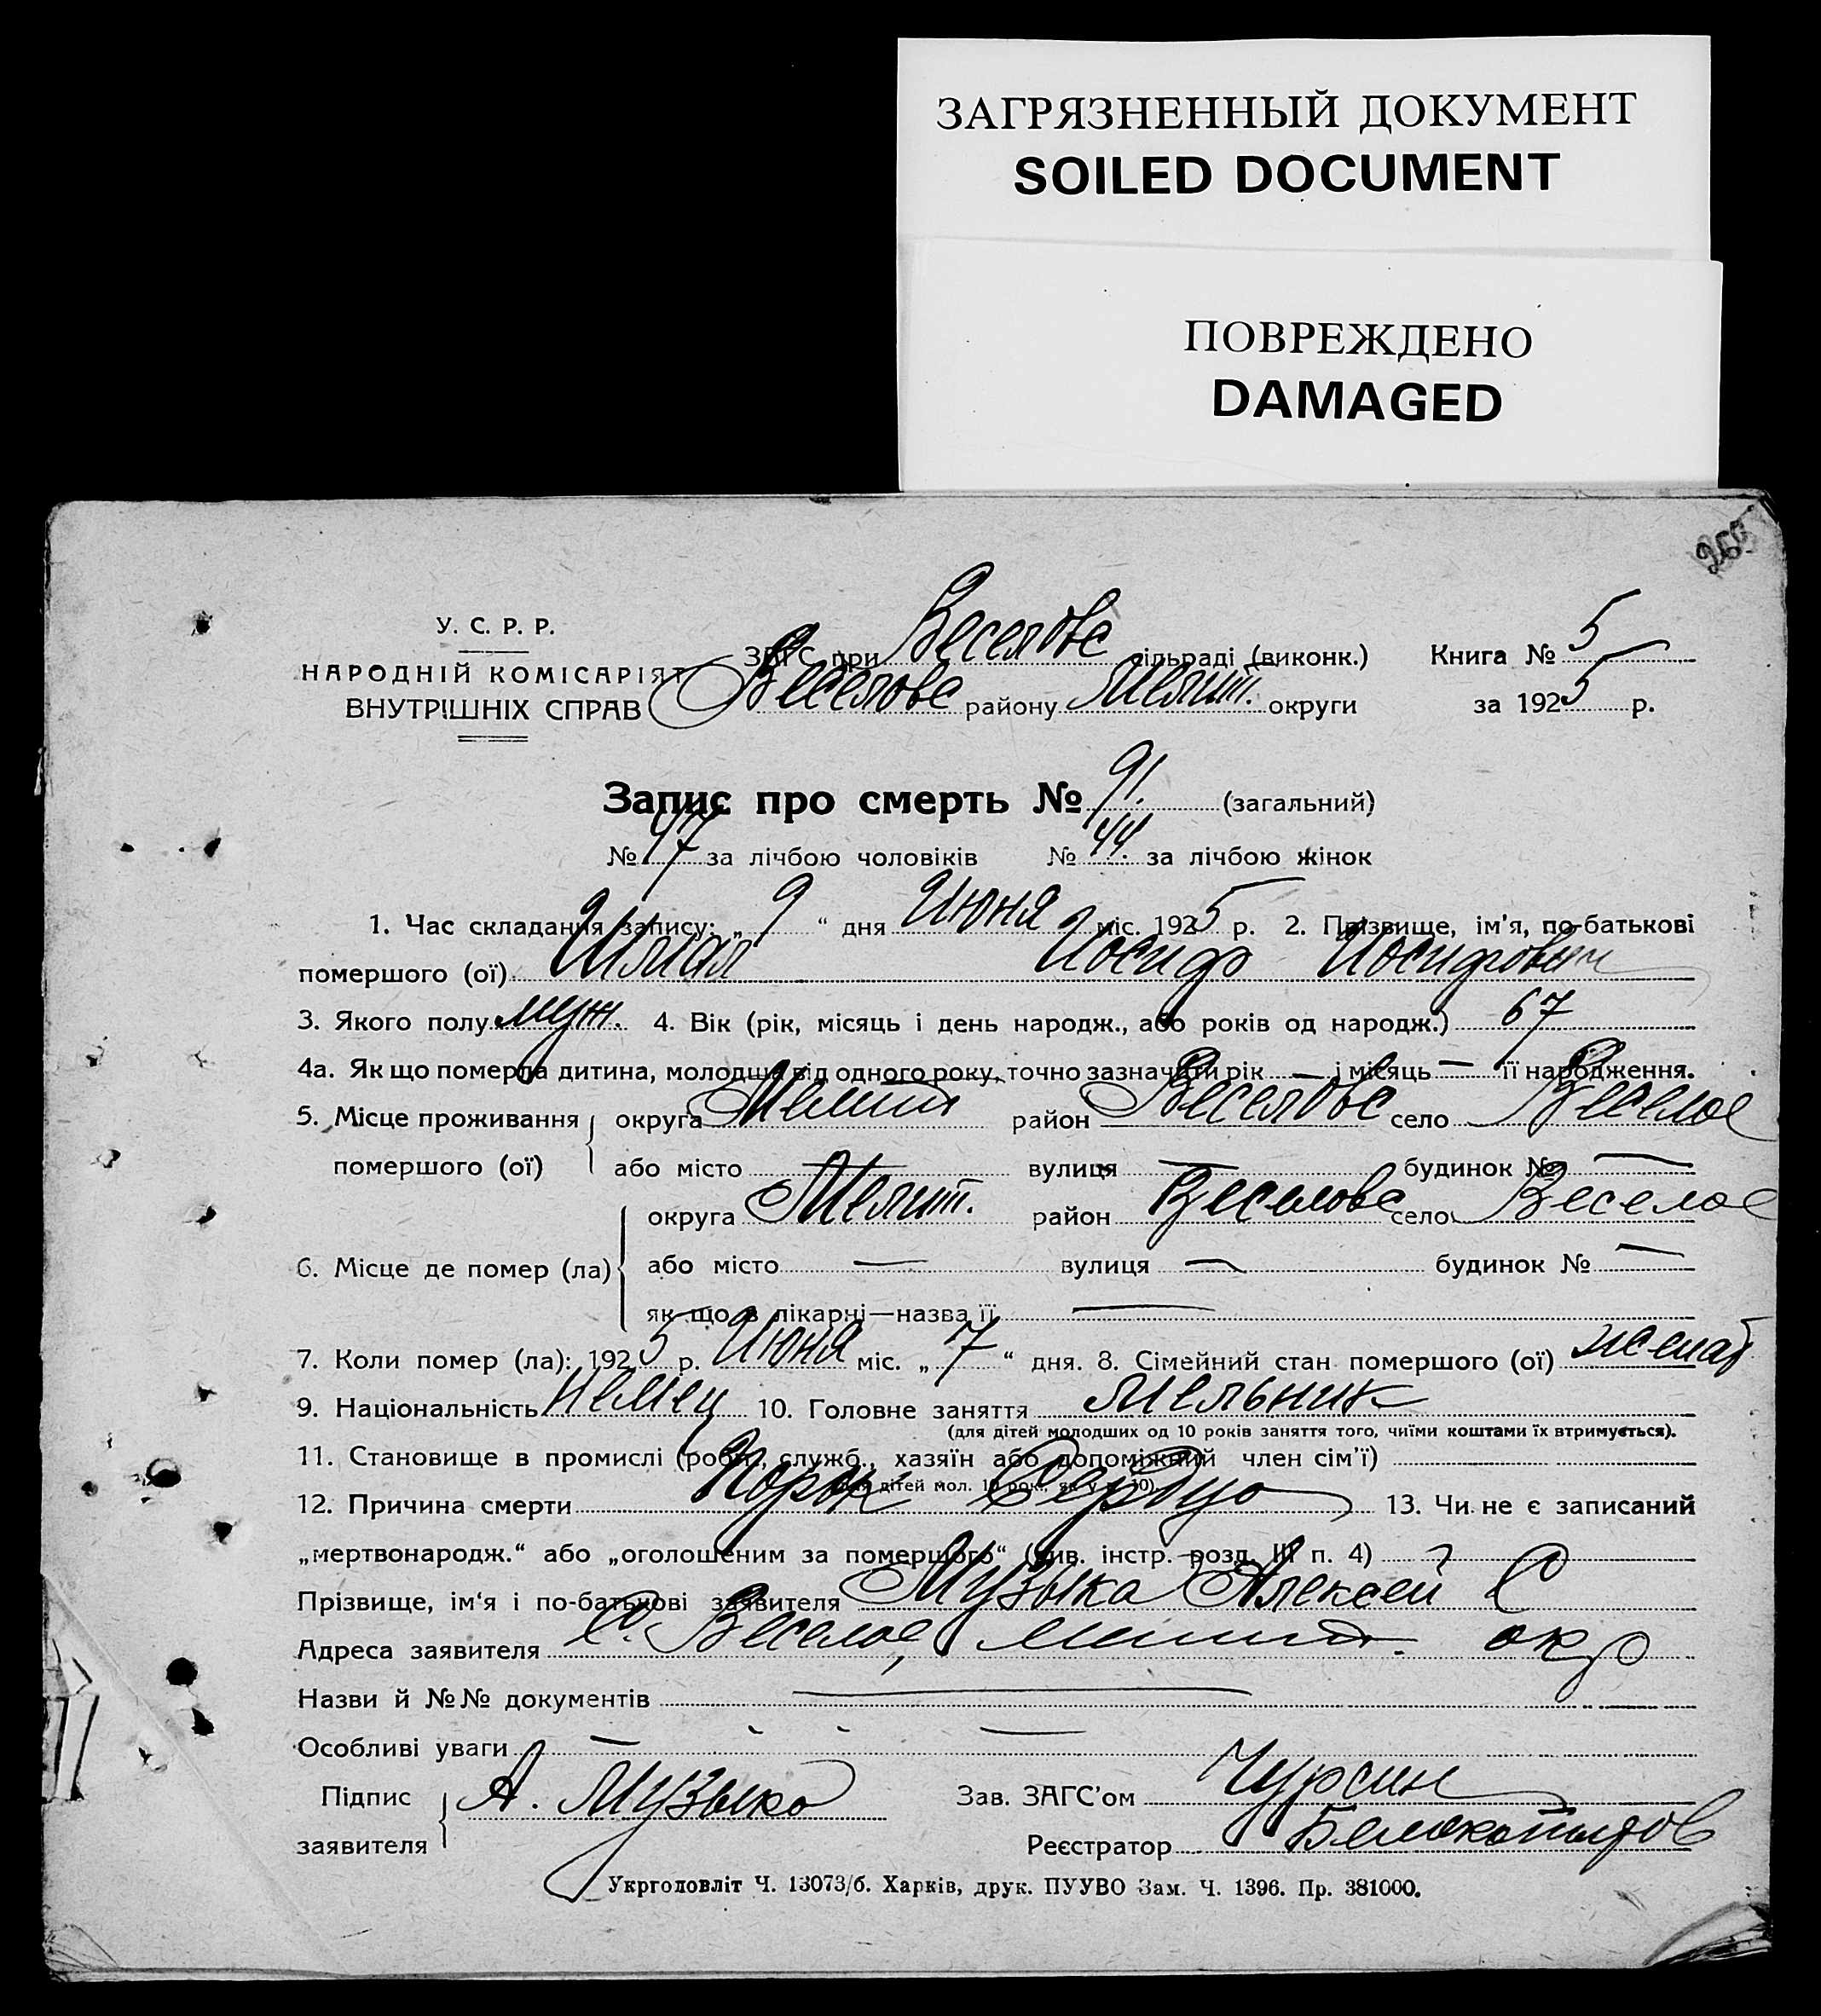 ЗАГРЯЗНЕННЫЙ ДОКУМЕНТ
SOILED DOCUMENT
ПОВРЕЖДЕНО
DAMAGED
У. С. Р. Р.
НАРОДНІЙ КОМІСАРІЯТ
ВНУТРІШНІХ СПРАВ
ЗАГС при Веселовс сільраді (виконк.) Книга № 5
Веселовс району Мелит. округи за 1925 р.
Запис про смерть № 91. (загальний)
№ 47 за лічбою чоловіків № 44. за лічбою жінок
1. Час складання запису: „ 9 “ дня Июня міс. 1925 р. 2. Прізвище, ім'я, по-батькові
помершого (ої) Иосиф Иосифович
3. Якого полу муж. 4. Вік (рік, місяць і день народж., або років од народж.) 67
4а. Як що померла дитина, молодша від одного року, точно зазначити рік — і місяць — її народження.
5. Місце проживання округа Мелит район Веселовс село Веселое
помершого (ої) або місто — вулиця — будинок № —
округа Мелит. район Веселовс село Веселое
6. Місце де помер (ла) або місто — вулиця — будинок № —
як що в лікарні—назва її —
7. Коли помер (ла): 1925 р. Июня міс. „ 7 “ дня. 8. Сімейний стан помершого (ої) женат
9. Національність Немец 10. Головне заняття Мельник
(для дітей молодших од 10 років заняття того, чиїми коштами їх втримується).
11. Становище в промислі (робіт., служб., хазяїн або допоміжний член сім'ї)
(для дітей мол. 10 рок., як у п. 10).
12. Причина смерти Порок Сердца 13. Чи не є записаний
„мертвонародж.“ або „оголошеним за помершого“ (див. інстр. розд. III п. 4)
Прізвище, ім'я і по-батькові заявителя Музыка Алексей С
Адреса заявителя С. Веселое, Мелит. окр
Назви й №№ документів —
Особливі уваги —
Підпис заявителя А. Музыка Зав. ЗАГС'ом Чурсин
Реєстратор Белокопытов
Укрголовліт Ч. 13073/б. Харків, друк. ПУУВО Зам. Ч. 1396. Пр. 381000.